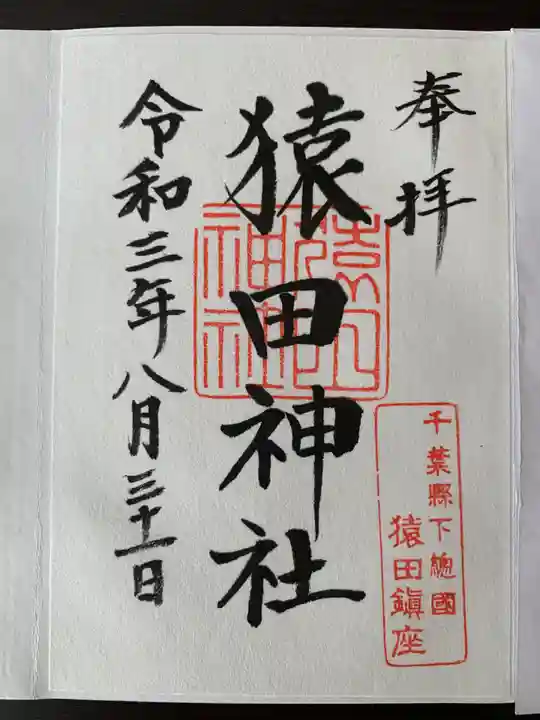 奉拝
千葉縣下總國
猿田鎮座
猿田神社
令和三年八月三十一日